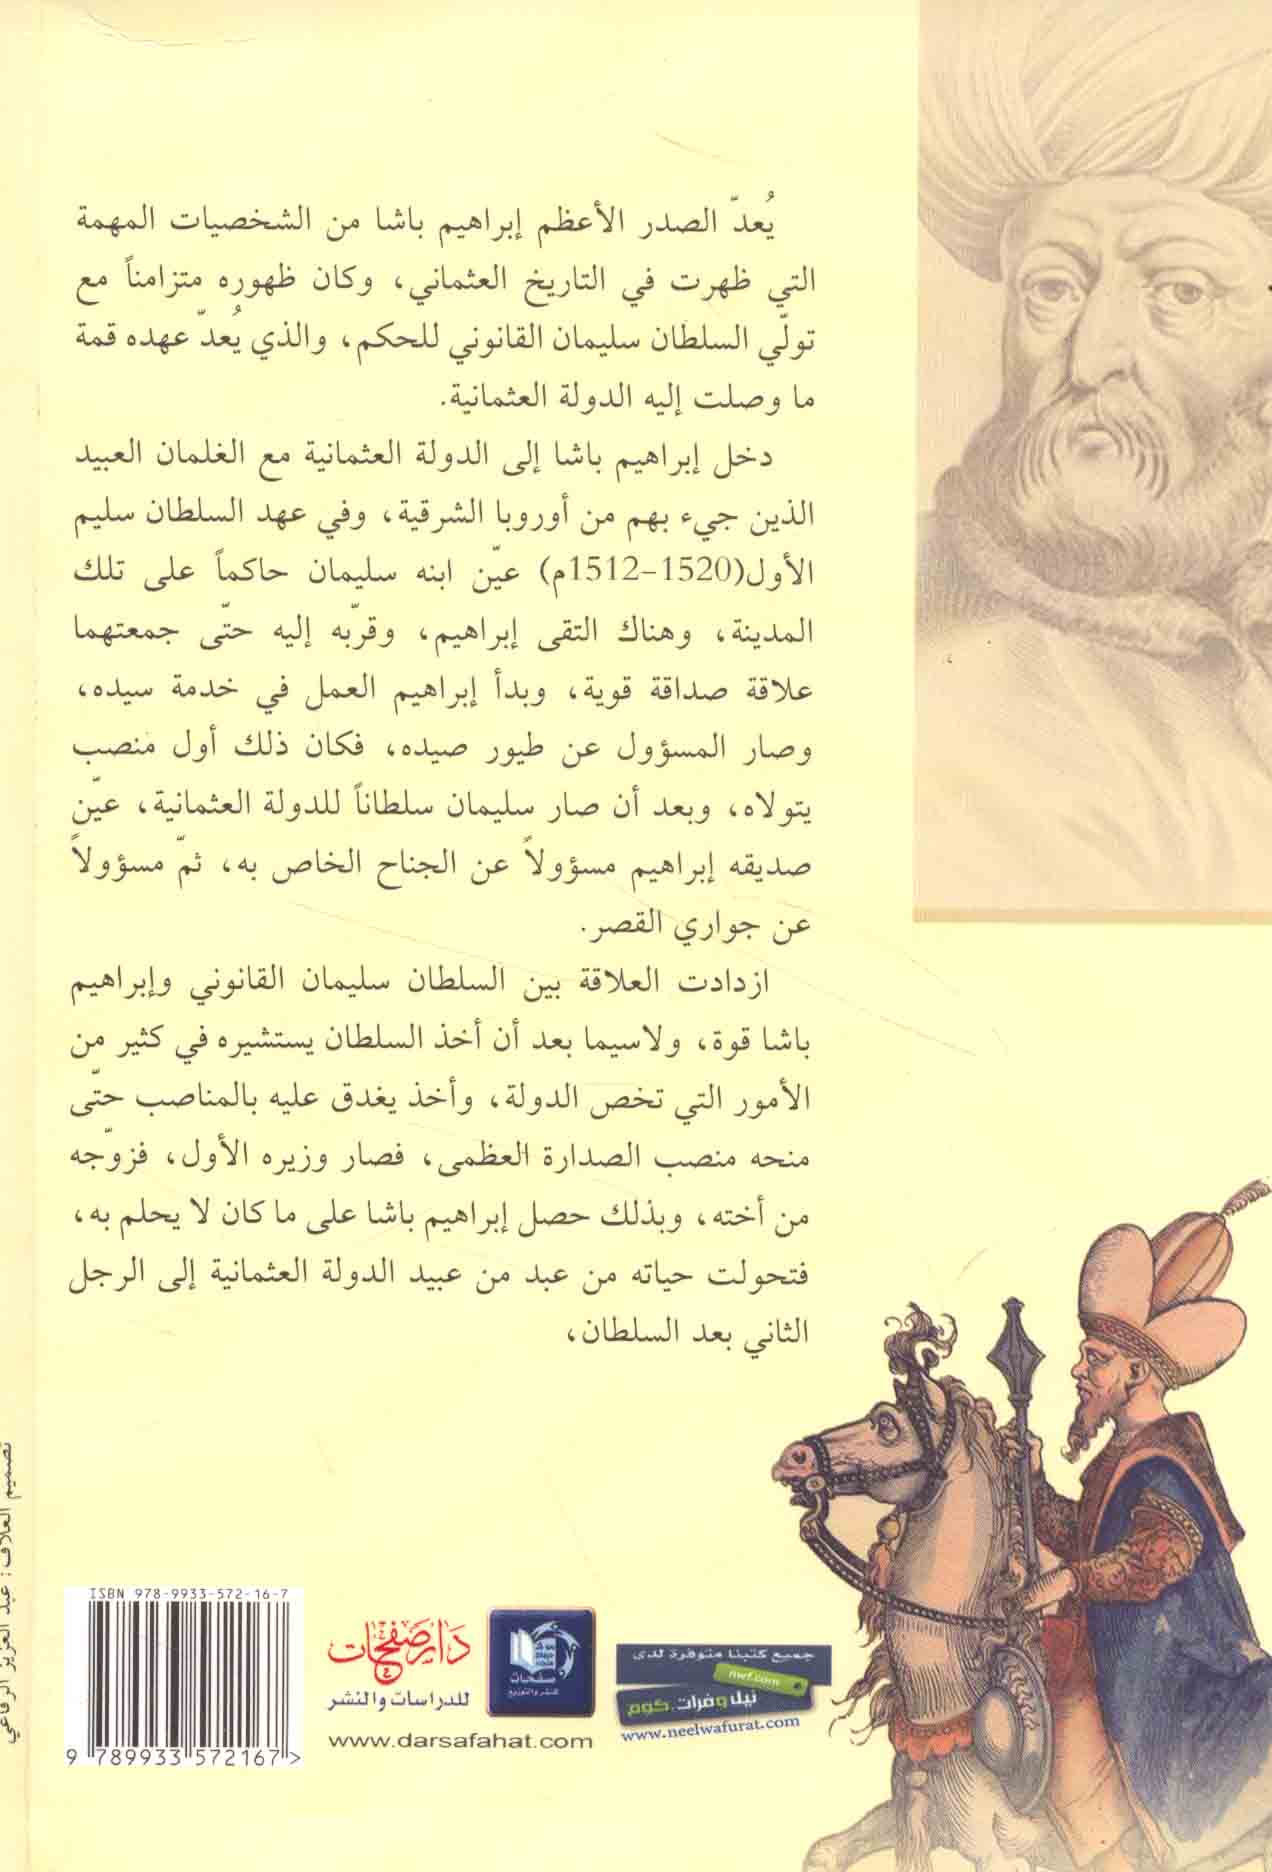 يُعدّ الصدر الأعظم إبراهيم باشا من الشخصيات المهمة
التي ظهرت في التاريخ العثماني، وكان ظهوره متزامناً مع
تولّي السلطان سليمان القانوني للحكم، والذي يُعدّ عهده قمة
ما وصلت إليه الدولة العثمانية.
دخل إبراهيم باشا إلى الدولة العثمانية مع الغلمان العبيد
الذين جيء بهم من أوروبا الشرقية، وفي عهد السلطان سليم
الأول(1520-1512م) عيّن ابنه سليمان حاكماً على تلك
المدينة، وهناك التقى إبراهيم، وقربّه إليه حتّى جمعتهما
علاقة صداقة قوية، وبدأ إبراهيم العمل في خدمة سيده،
وصار المسؤول عن طيور صيده، فكان ذلك أول منصب
يتولاه، وبعد أن صار سليمان سلطاناً للدولة العثمانية، عيّن
صديقه إبراهيم مسؤولاً عن الجناح الخاص به، ثمّ مسؤولاً
عن جواري القصر.
ازدادت العلاقة بين السلطان سليمان القانوني وإبراهيم
باشا قوة، ولاسيما بعد أن أخذ السلطان يستشيره في كثير من
الأمور التي تخص الدولة، وأخذ يغدق عليه بالمناصب حتّى
منحه منصب الصدارة العظمى، فصار وزيره الأول، فزوّجه
من أخته، وبذلك حصل إبراهيم باشا على ما كان لا يحلم به،
فتحولت حياته من عبد من عبيد الدولة العثمانية إلى الرجل
الثاني بعد السلطان،
تصميم الغلاف: عبد العزيز الرفاعي
ISBN 978-9933-572-16-7
9 789933 572167 >
دار صفحات
للدراسات والنشر
www.darsafahat.com
صفحات
للنشر والتوزيع
جميع كتبنا متوفرة لدى
nwf.com
نيل وفرات.كوم
www.neelwafurat.com